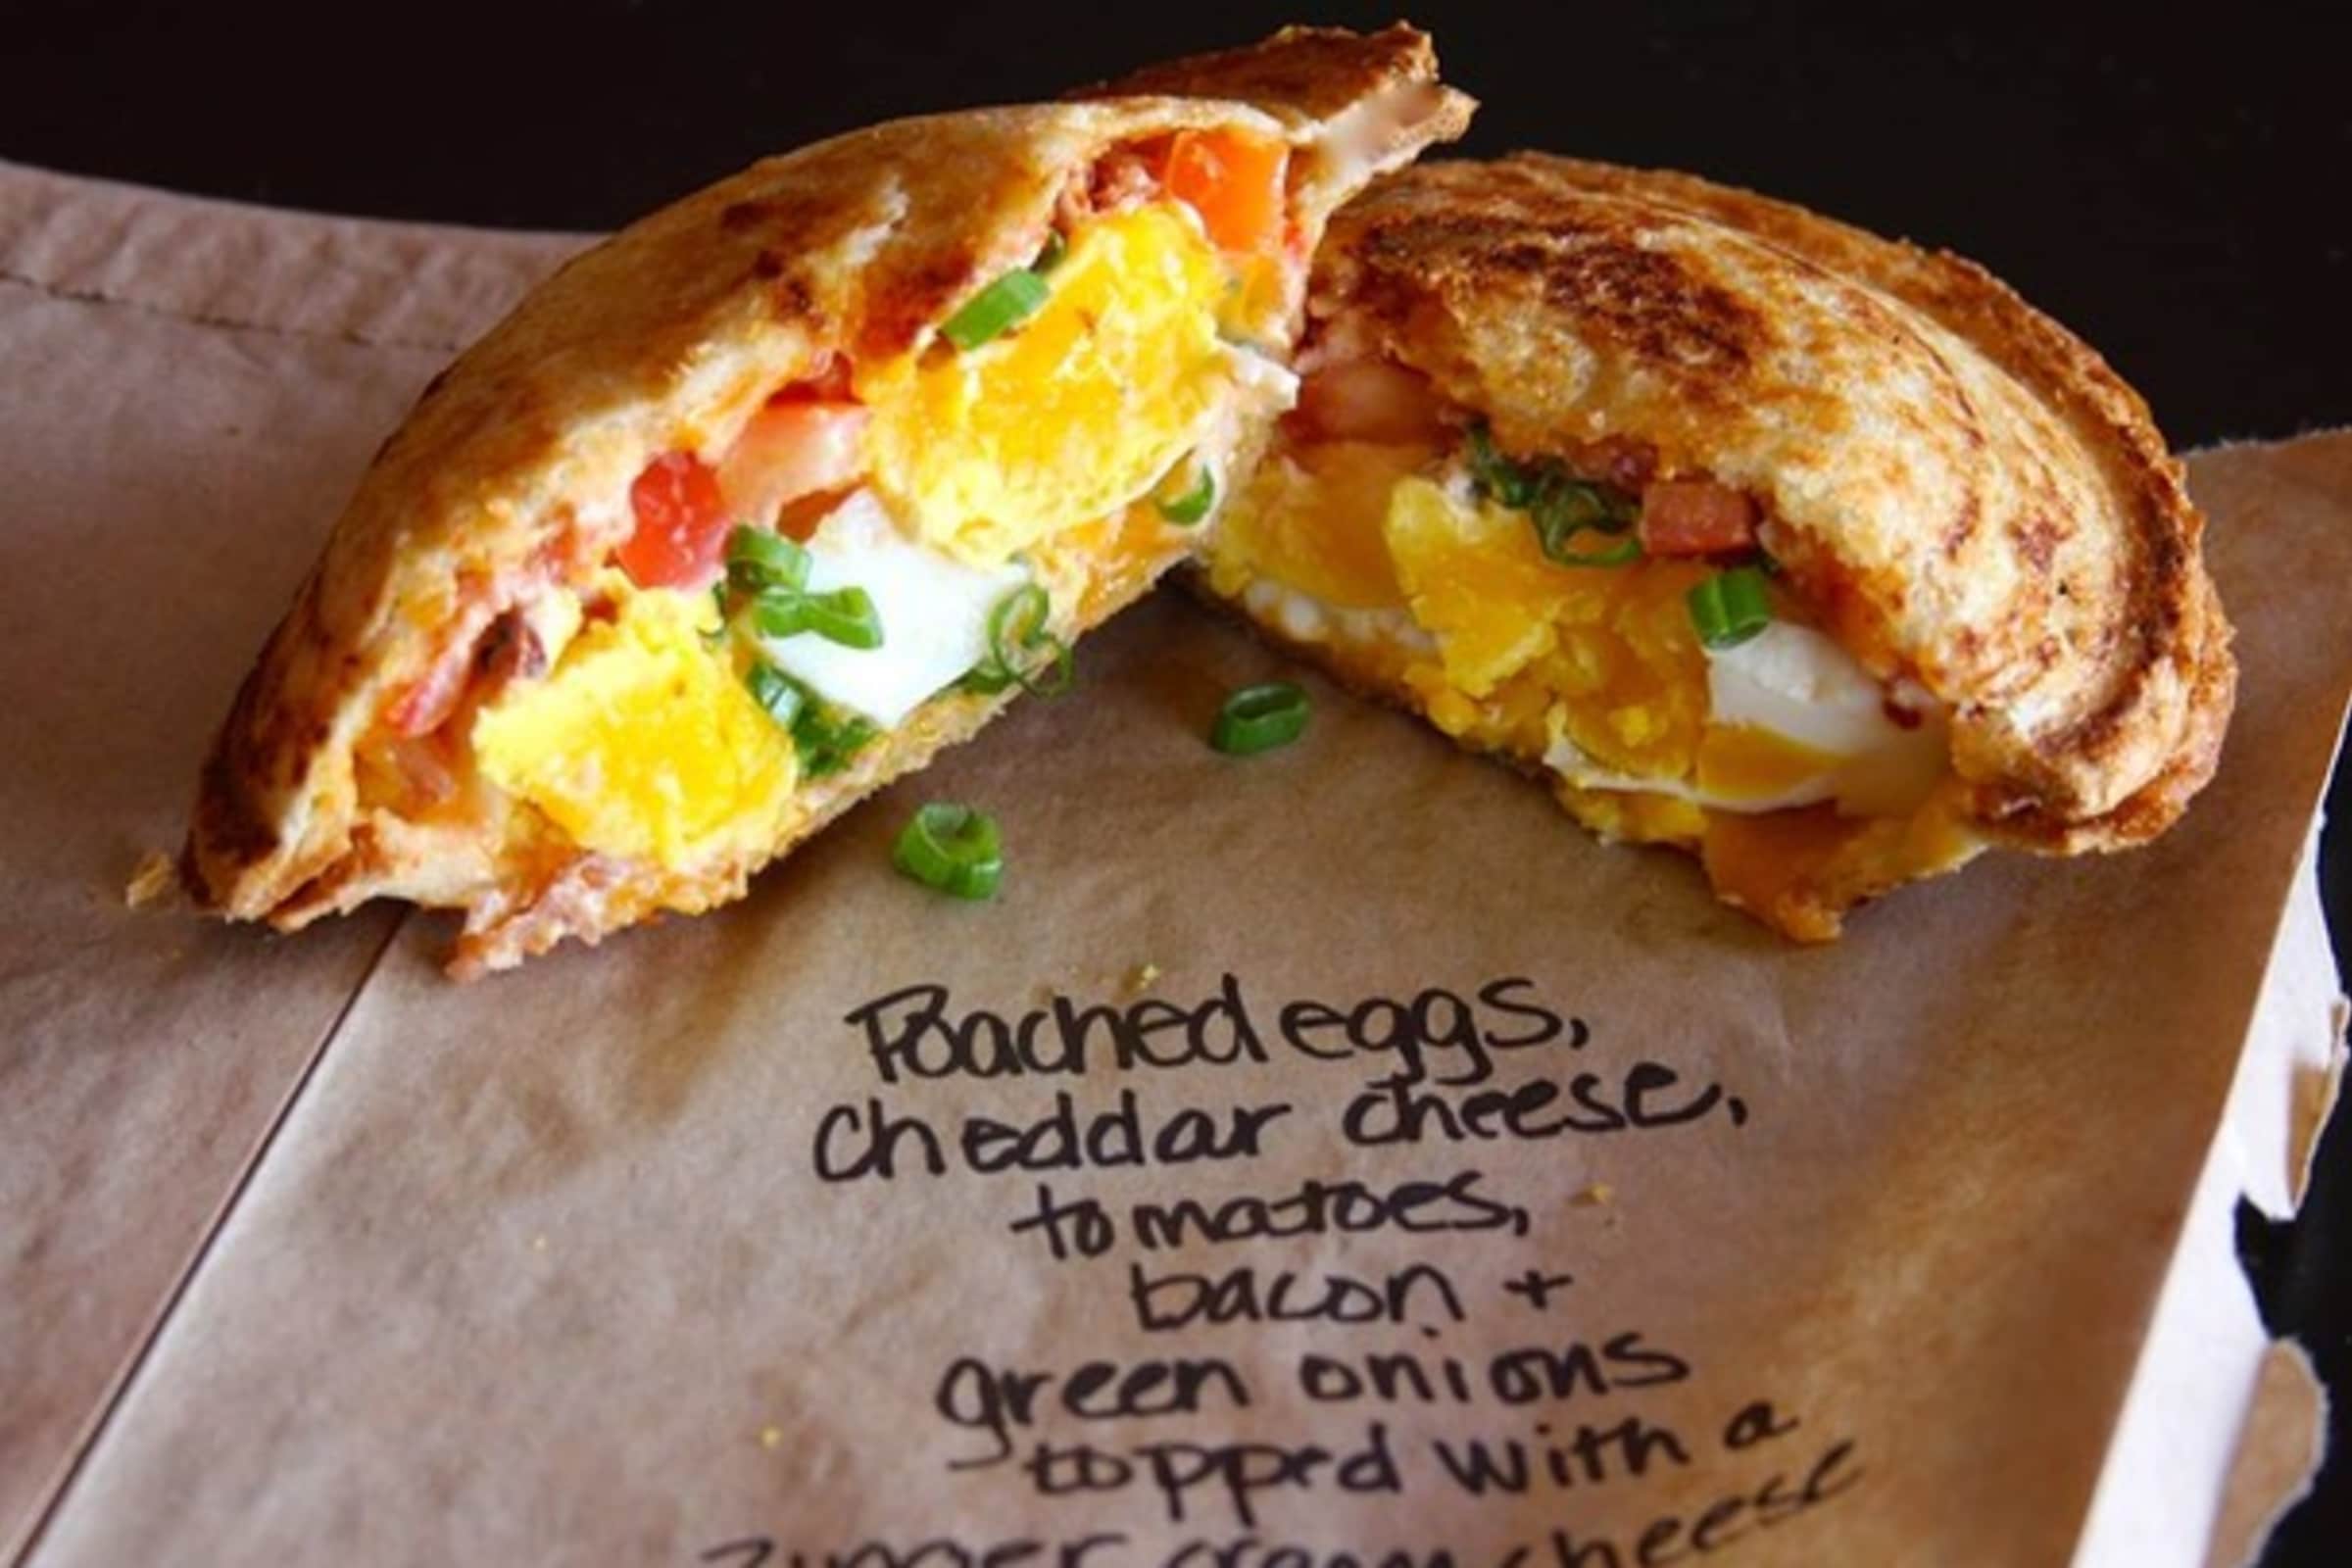 Poached eggs,
Cheddar cheese,
tomatoes,
bacon +
green onions
topped with a
zinger cream cheese